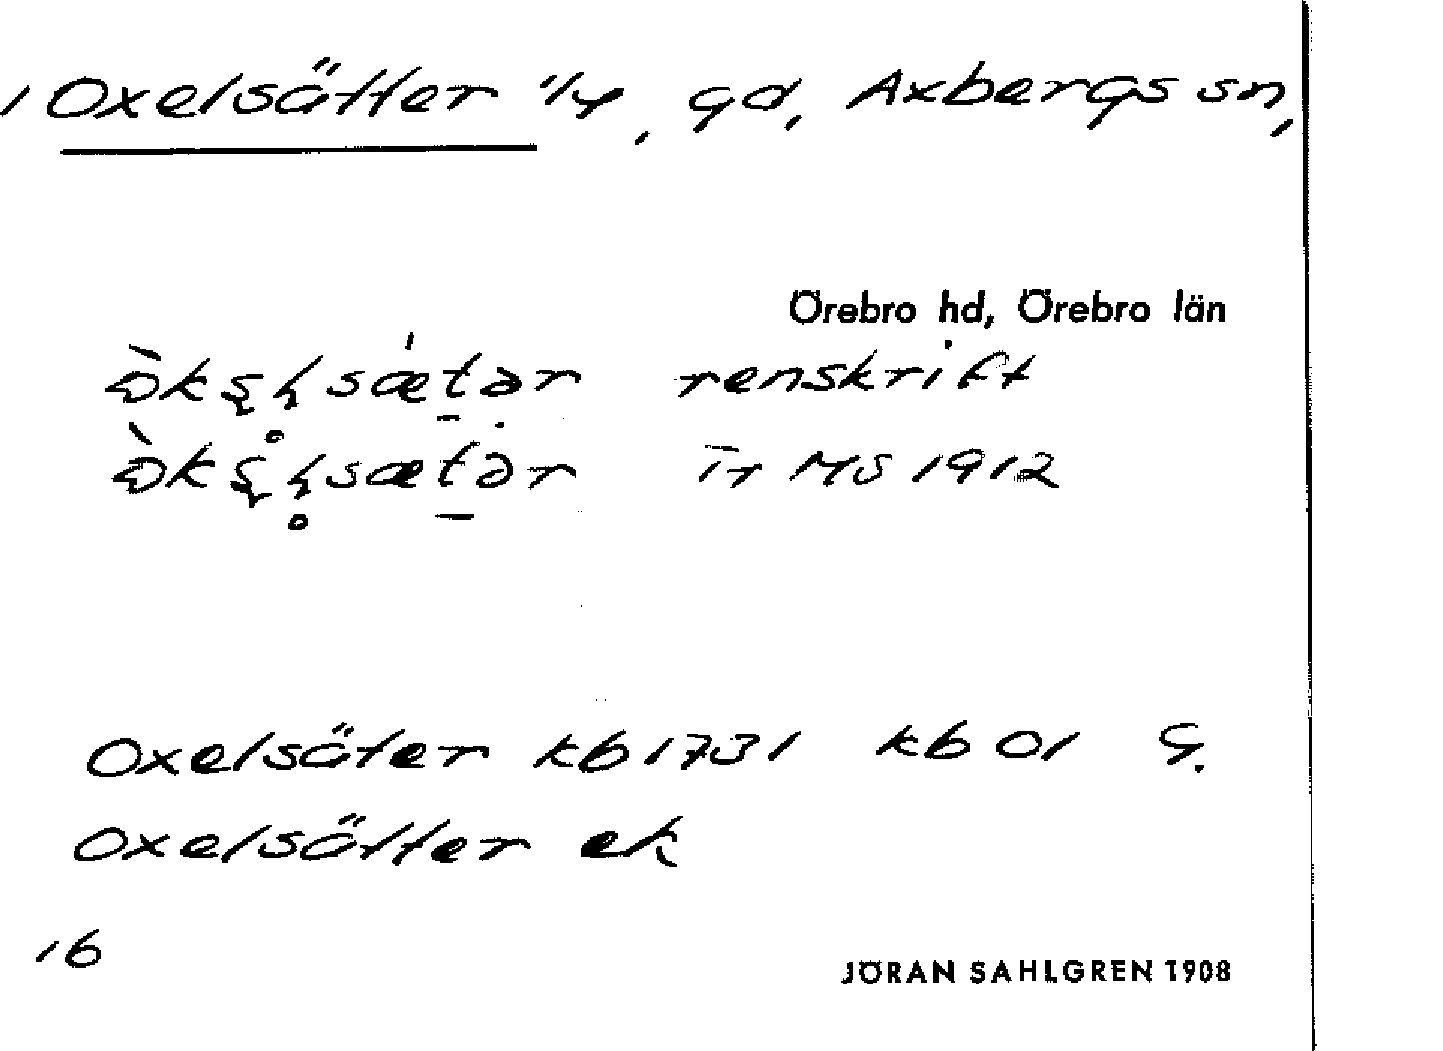 1 Oxelsätter 1/4, gd, Axbergs sn,
Örebro hd, Örebro län
renskrift
īr MS 1912
Oxelsäter kb 1731 kb 01 G.
Oxelsätter ek
16
JÖRAN SAHLGREN 1908